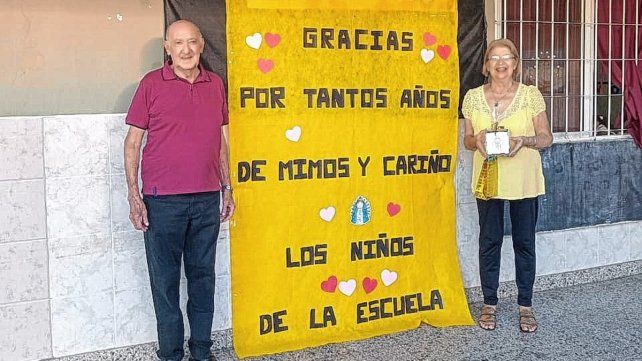 GRACIAS
POR TANTOS AÑOS
DE MIMOS Y CARIÑO
LOS NIÑOS
DE LA ESCUELA